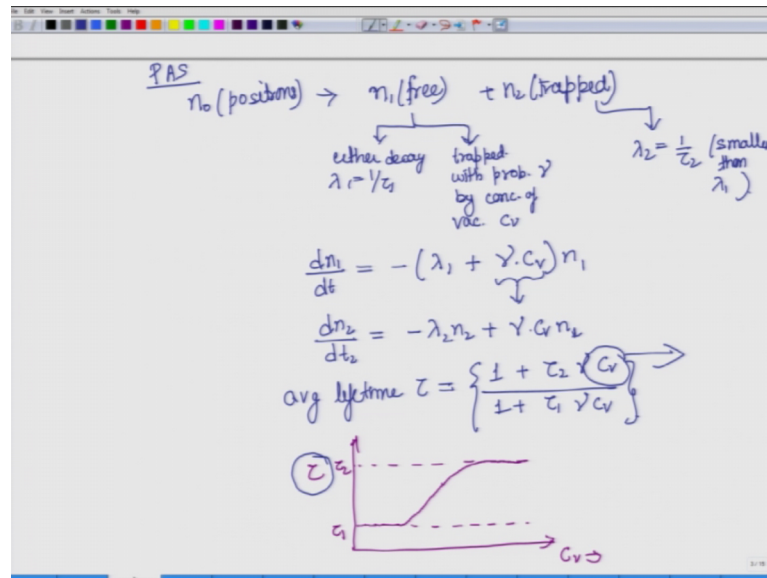 File Edit View Insert Actions Tools Help
PAS
n₀ (positions) → n₁ (free) + n₂ (trapped)
either decay
λ₁ = 1/τ₁
trapped
with prob. ν
by conc. of
vac. Cv
λ₂ = 1/τ₂ (smaller
than
λ₁)
dn₁/dt = -(λ₁ + ν.Cv) n₁
dn₂/dt₂ = -λ₂n₂ + ν.Cv n₂
avg lifetime τ = {(1 + τ₂ ν Cv)/(1 + τ₁ ν Cv)}
τ τ₂
τ₁
Cv →